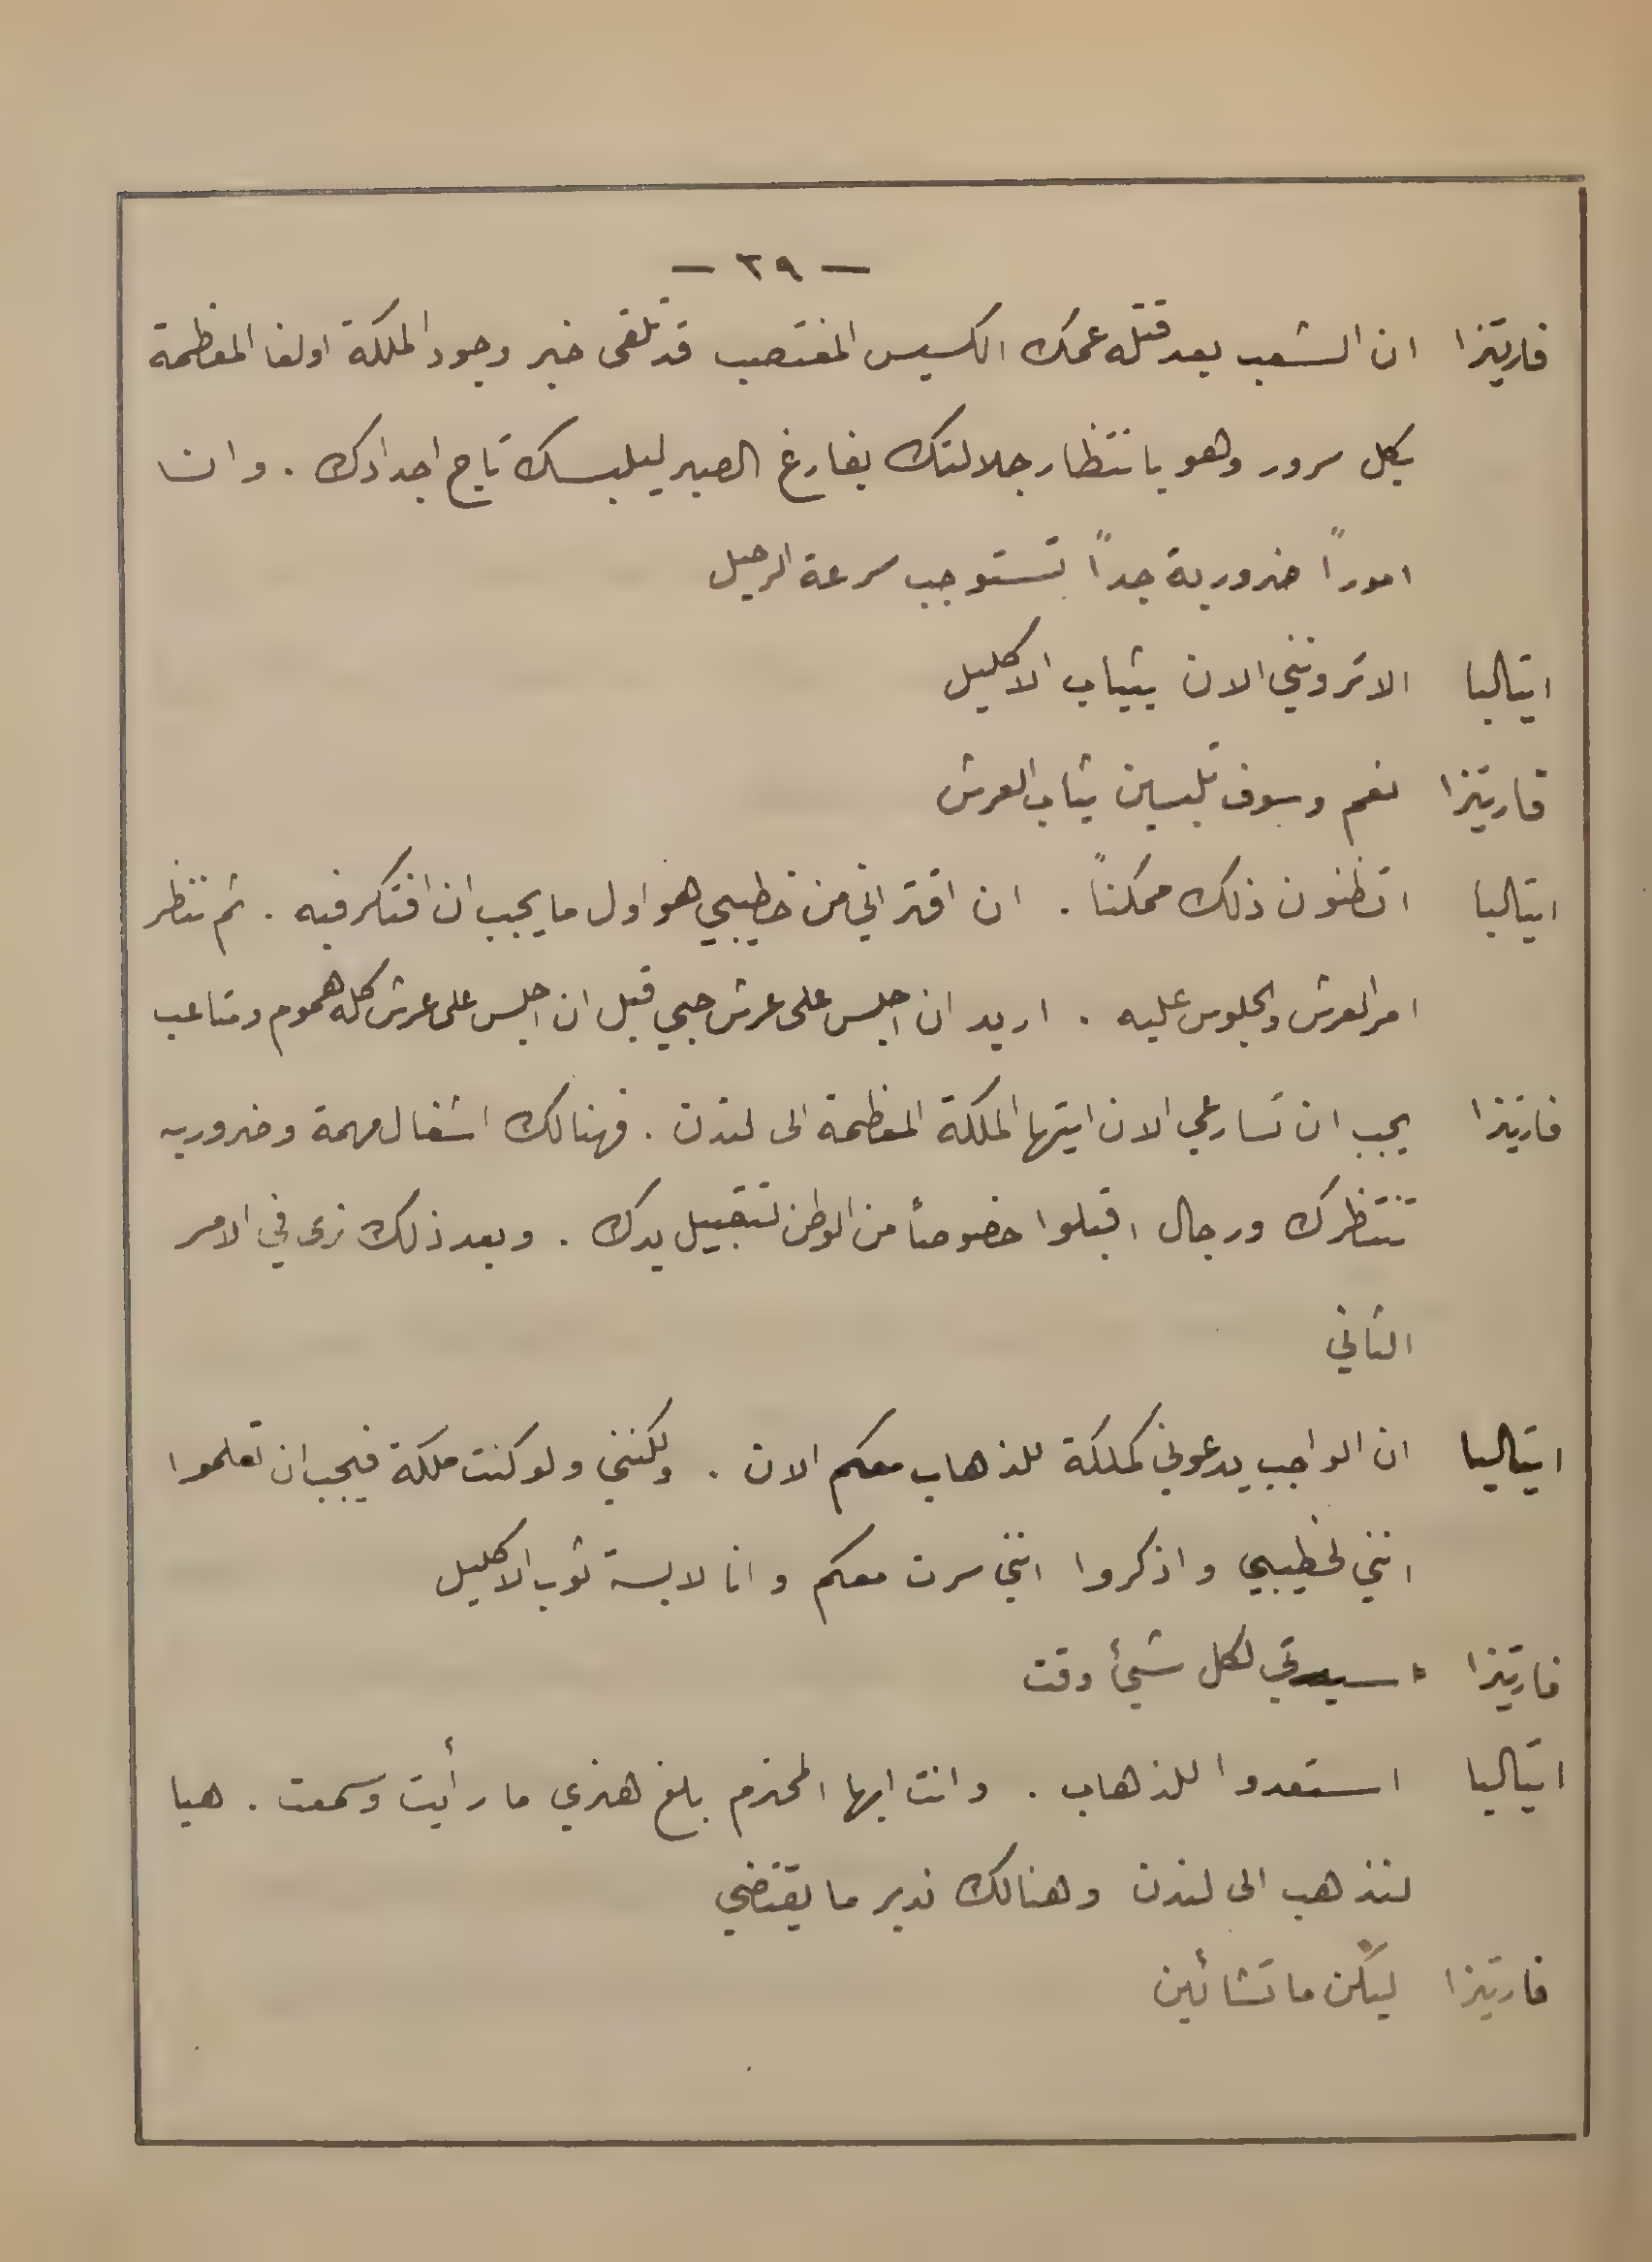 — ٣٩ —
فارتيزا ان الشعب بعد قتله عمك الكسيس المغتصب قد تلقى خبر وجود الملكة اولغا المعظمة
بكل سرور وهو بانتظار جلالتك بفارغ الصبر ليلبسك تاج اجدادك . وان
اموراً ضرورية جداً تستوجب سرعة الرحيل
ايتاليا الا ترونني الان بثياب الاكليل
فارتيزا نعم وسوف تلبسين ثياب العرش
ايتاليا اتظنون ذلك ممكناً . ان اقتراني من خطيبي هو اول ما يجب ان افتكر فيه . ثم ننظر
امر العرش والجلوس عليه . اريد ان اجلس على عرش حبي قبل ان اجلس على عرش كله هموم ومتاعب
فارتيزا يجب ان تسارعي الان ايتها الملكة المعظمة الى لندن . فهنالك اشغال مهمة وضروريه
تنتظرك ورجال اقبلوا خصوصاً من الوطن لتقبيل يدك . وبعد ذلك نرى في الامر
الثاني
ايتاليا ان الواجب يدعوني كملكة للذهاب معكم الان . ولكنني ولو كنت ملكة فيجب ان تعلموا
انني لخطيبي واذكروا انني سرت معكم وانا لابسة ثوب الاكليل
فارتيزا سيدتي لكل شيئ وقت
ايتاليا استعدوا للذهاب . وانت ايها المحترم بلغ هنري ما رأيت وسمعت . هيا
لنذهب الى لندن وهنالك ندبر ما يقتضي
فارتيزا ليكن ما تشائين